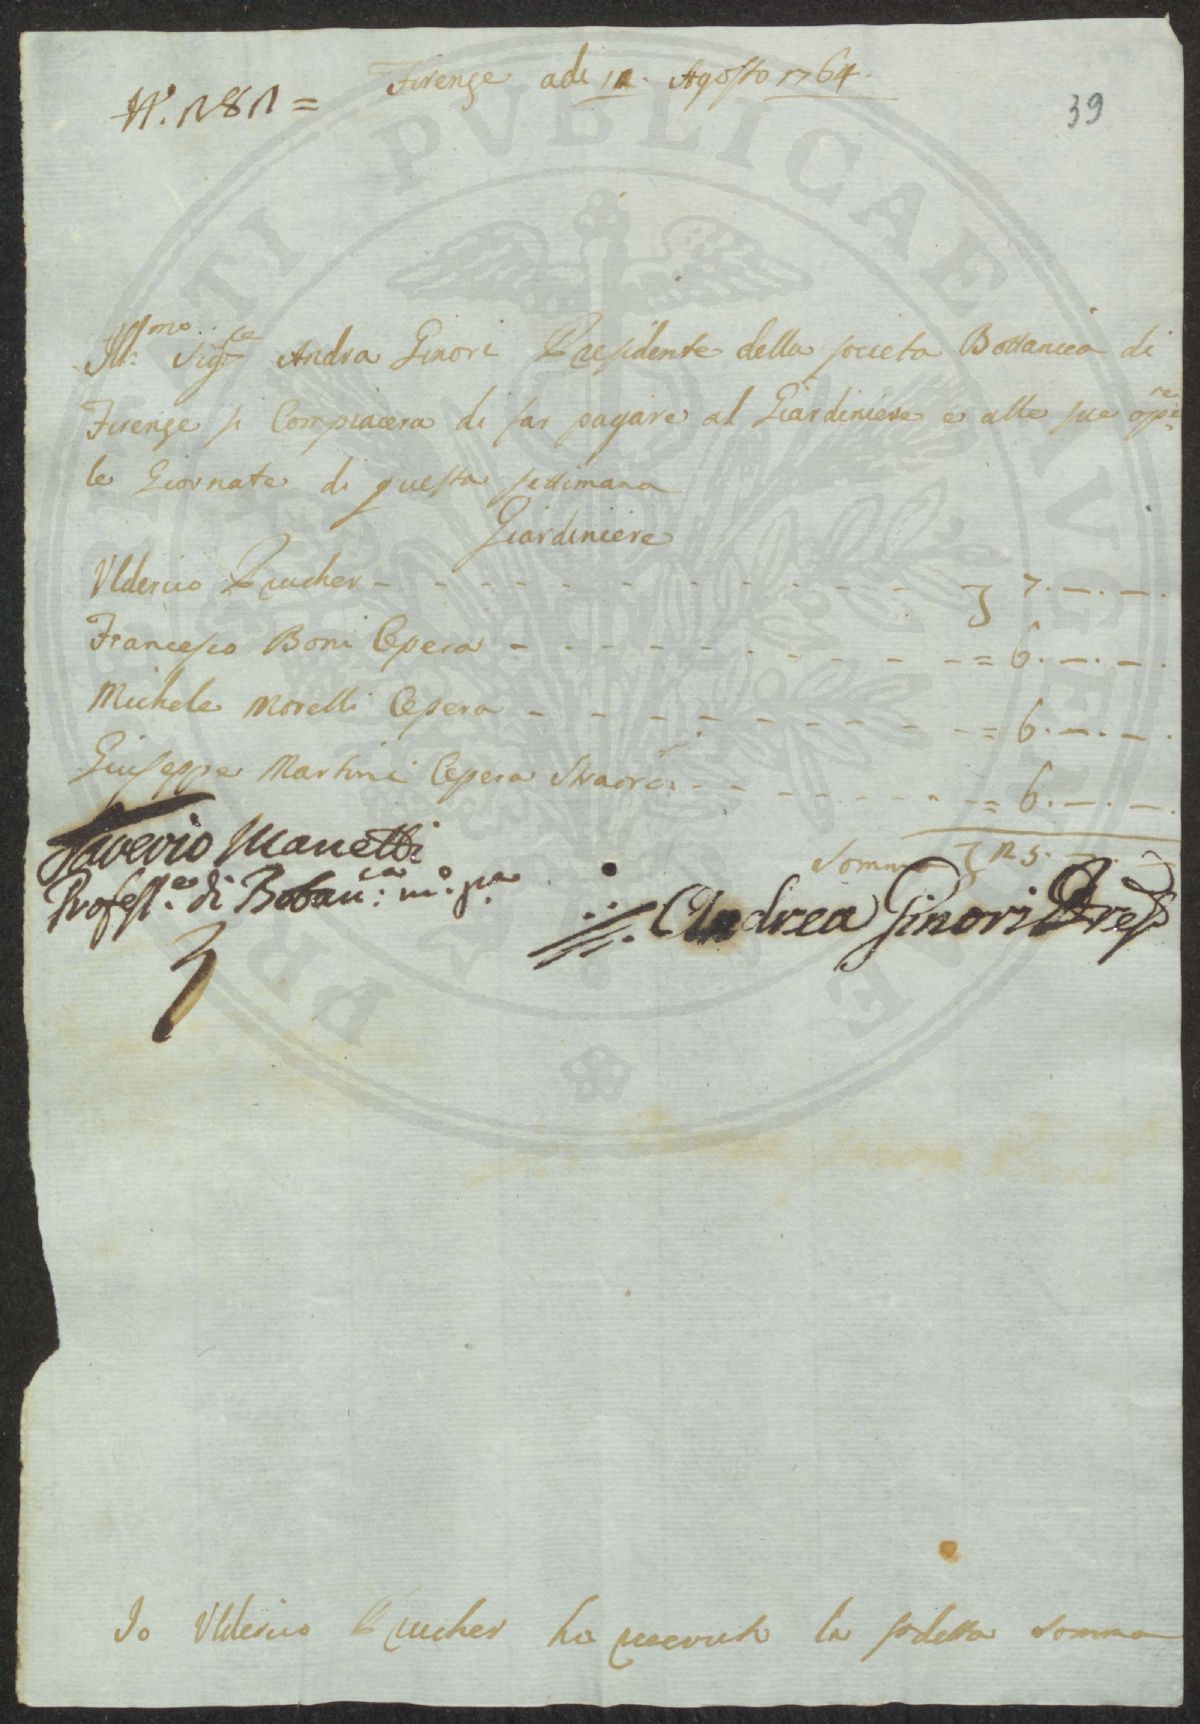 Firenze adi 12. Agosto 1764.
N.º 181 =
39
Ill:mo Sig:re Andra Ginori Presidente della societa Bottanica di
Firenze si Compiacera di far pagare al Giardiniere e alle sue opre
le Giornate di questa settimana
Giardiniere
Ulderico Prucher - - - - - - - - - - - - - - - 7. —. —.
Francesco Boni Opera - - - - - - - - - - = 6. —. —.
Michele Morelli Opera - - - - - - - - - - = 6. —. —.
Giuseppe Martini Opera Straord: - - - - - - - = 6. —. —.
Somma 25. —. —
Saverio Manetti
Profess.e di Botan:ca m.o p.a
Andrea Ginori Pres
Io Ulderico Prucher ho riceuuto la sodetta somma
PROSPERITATI PVBLICAE AVGENDAE